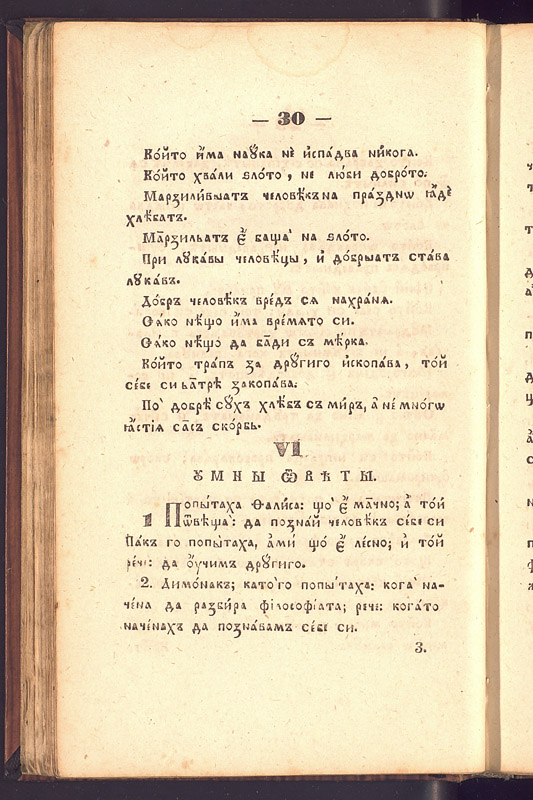 — 30 —
Ко́йто и҆́ма наꙋ́ка нѐ и҆спа́два ни́кога.
Ко́йто хва́ли ѕло́то, не лю́би добро́то.
Марзили́выатъ человѣ́къ на пра́здни ꙗ҆дѐ
хлѣ́батъ.
Ма́рзильатъ є҆́ баща̀ на ѕло́то.
При лꙋка́вы человѣ́цы, и҆ до́брыатъ ста́ва
лꙋка́въ.
До́бръ человѣ́къ вре́дъ ся нахра́ня.
Ѳа́ко нѣ́що и҆́ма вре́мято си.
Ѳа́ко нѣ́що да ба́ди съ мѣ́рка.
Ко́йто тра́пъ за дрꙋ́гиго и҆скопа́ва, то́й
се́бе си ва́трѣ закопа́ва.
По̀ добрѣ̀ сꙋ́хъ хлѣ́бъ съ ми́ръ, а҆ не́ мно́гѡ
ꙗ҆́стїя са́съ ско́рбь.
VI.
ОУМНЫ ѾВѢТЫ.
1 Попы́таха Ѳали́са: що̀ є҆́ ма́чно; а҆ то́й
ѿвѣща̀: да позна́й человѣ́къ се́бе си
Па́къ го попы́таха, а҆ми́ що̀ є҆́ ле́сно; и҆ то́й
речѐ: да оу҆́чимъ дрꙋ́гиго.
2. Димо́накъ; като̀ го попы́таха: кога̀ на-
че́на да разби́ра філосо́фіата; рече: кога́то
наче́нахъ да позна́вамъ се́бе си.
3.